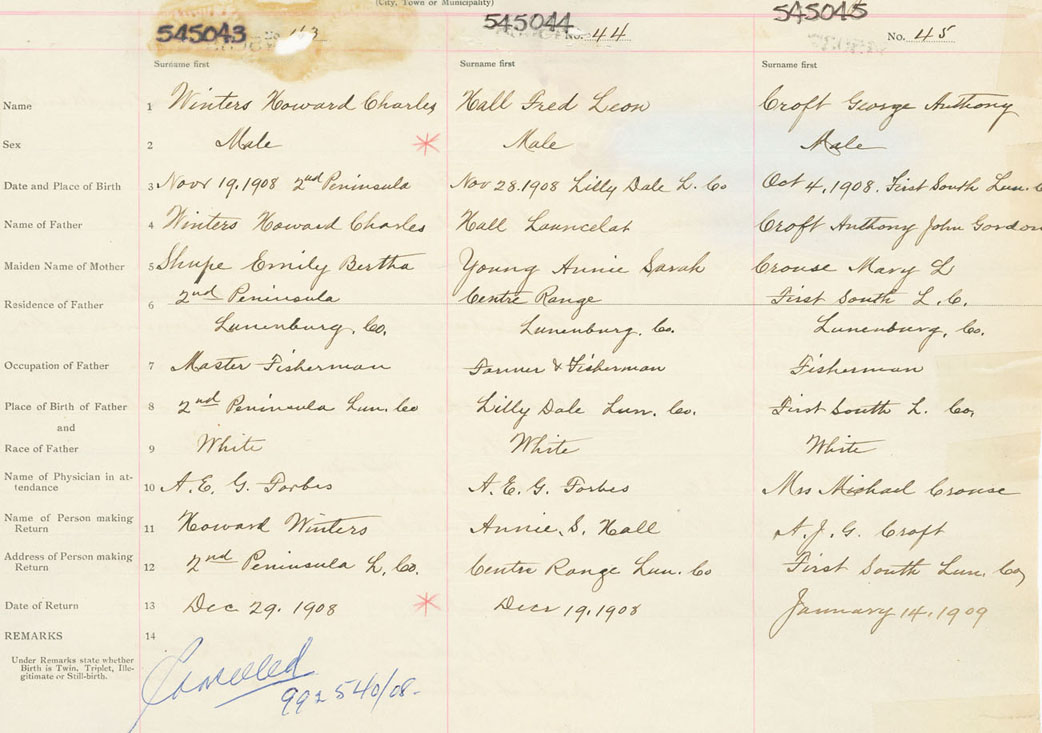 (City, Town or Municipality)
545043 No. 43
545044 No. 44
545045 No. 45
Surname first Surname first Surname first
Name 1 Winters Howard Charles Hall Fred Leon Croft George Anthony
Sex 2 Male Male Male
Date and Place of Birth 3 Novr 19, 1908 2nd Peninsula Nov 28. 1908 Lilly Dale L. Co Oct 4, 1908. First South Lun.
Name of Father 4 Winters Howard Charles Hall Launcelot Croft Anthony John Gordon
Maiden Name of Mother 5 Shupe Emily Bertha Young Annie Sarah Crouse Mary L
Residence of Father 6 2nd Peninsula Centre Range First South L. C.
Lunenburg, Co. Lunenburg, Co. Lunenburg, Co.
Occupation of Father 7 Master Fisherman Farmer & Fisherman Fisherman
Place of Birth of Father 8 2nd Peninsula Lun. Co Lilly Dale Lun. Co. First South L. Co,
and
Race of Father 9 White White White
Name of Physician in at-
tendance 10 A. E. G. Forbes A. E. G. Forbes Mrs Michael Crouse
Name of Person making
Return 11 Howard Winters Annie. S. Hall A. J. G. Croft
Address of Person making
Return 12 2nd Peninsula L. Co. Centre Range Lun. Co First South Lun. Co,
Date of Return 13 Dec 29. 1908 Decr 19, 1908 January 14, 1909
REMARKS 14
Under Remarks state whether
Birth is Twin, Triplet, Ille-
gitimate or Still-birth.
Cancelled
992540/08-